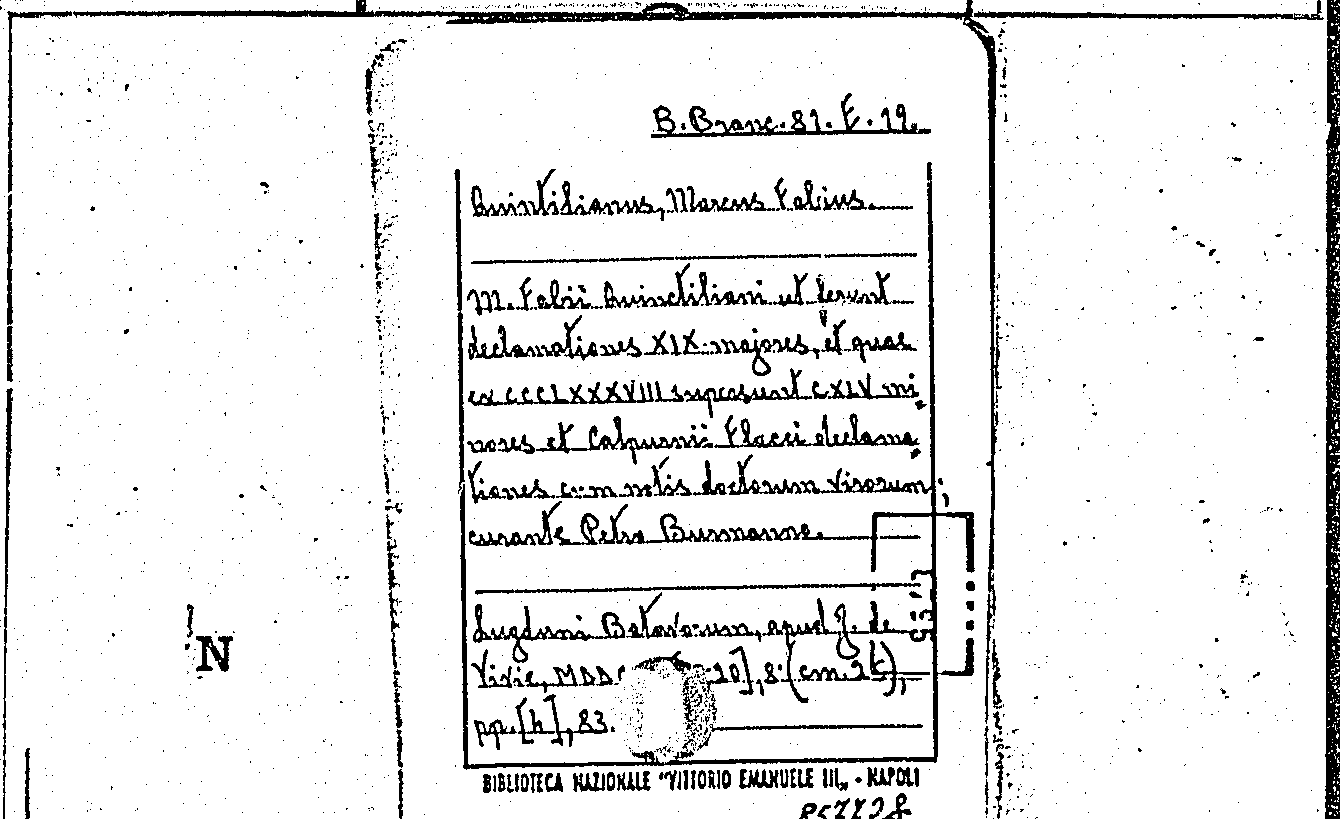 B. Branc. 81. E. 19.
Quintilianus, Marcus Fabius.
M. Fabii Quinctiliani ut ferunt
declamationes XIX majores, et quae
ex CCCLXXXVIII supersunt CXLV mi-
nores et Calpurnii Flacci declama-
tiones cum notis doctorum virorum;
curante Petro Burmanno.
Lugduni Batavorum, apud J. de
Vivie, MDCC 20], 8° (cm. 2
pp. [4], 83.
N
BIBLIOTECA NAZIONALE "VITTORIO EMANUELE III„ - NAPOLI